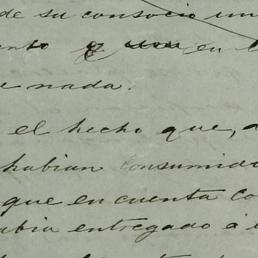 de su consocio
en
e nada.
el hecho que, a
habian consumido
que en cuenta co
abia entregado á